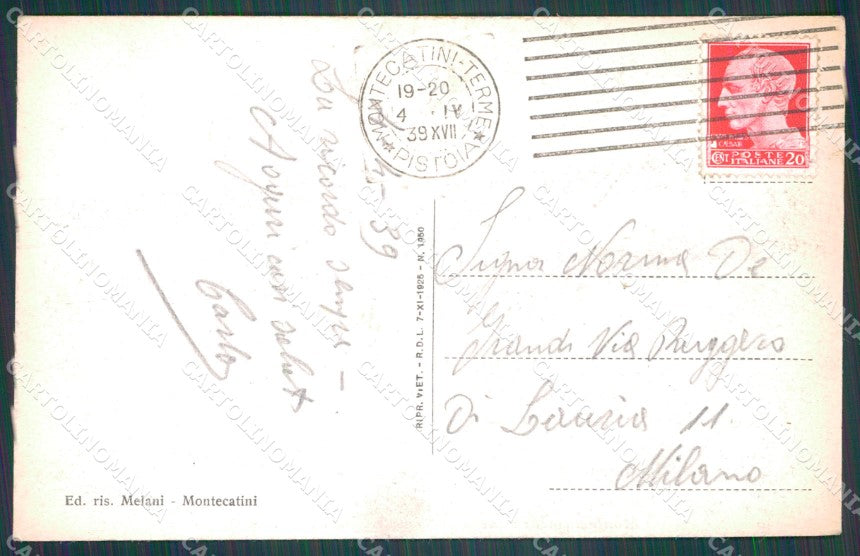 MONTECATINI-TERME
19-20
4 IV
39 XVII
★ PISTOIA ★
CAESAR
CENT. POSTE ITALIANE 20
4-39
Tu ricordo sempre —
Auguri cari saluti
Carlo
Sig.na Norma De
Grandi Via Ruggero
Di Lauria 11
Milano
RIPR. VIET. - R.D.L. 7-XI-1925 - N. 1950
Ed. ris. Melani - Montecatini
CARTOLINOMANIA